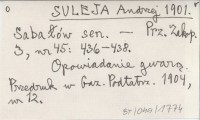 SULEJA Andrzej 1901.
Sabałów sen. — Prz. Zakop.
3, nr 45: 436-438.
Opowiadanie gwarą.
Przedruk w Gaz. Podtatrz. 1904,
nr 12.